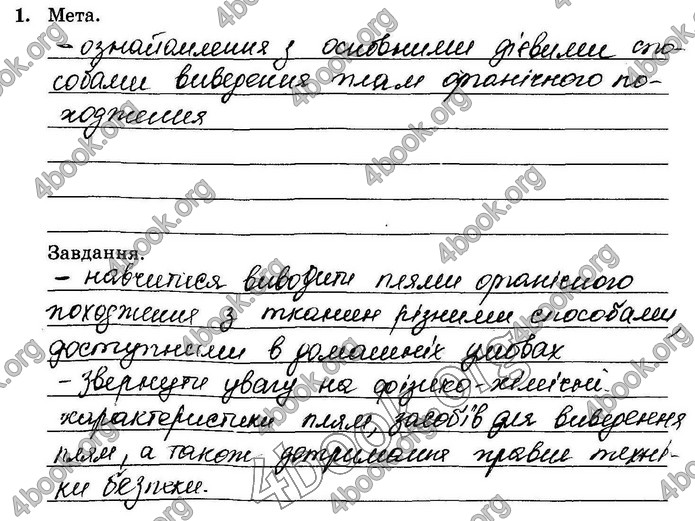 1. Мета.
- ознайомлення з основними дієвими спо-
собами виведення плям органічного по-
ходження
Завдання.
- навчитися виводити плями органічного
походження з тканин різними способами,
доступними в домашніх умовах
- Звернути увагу на фізико-хімічні
характеристики плям, засобів для виведення
плям, а також дотримання правил техні-
ки безпеки.
4book.org